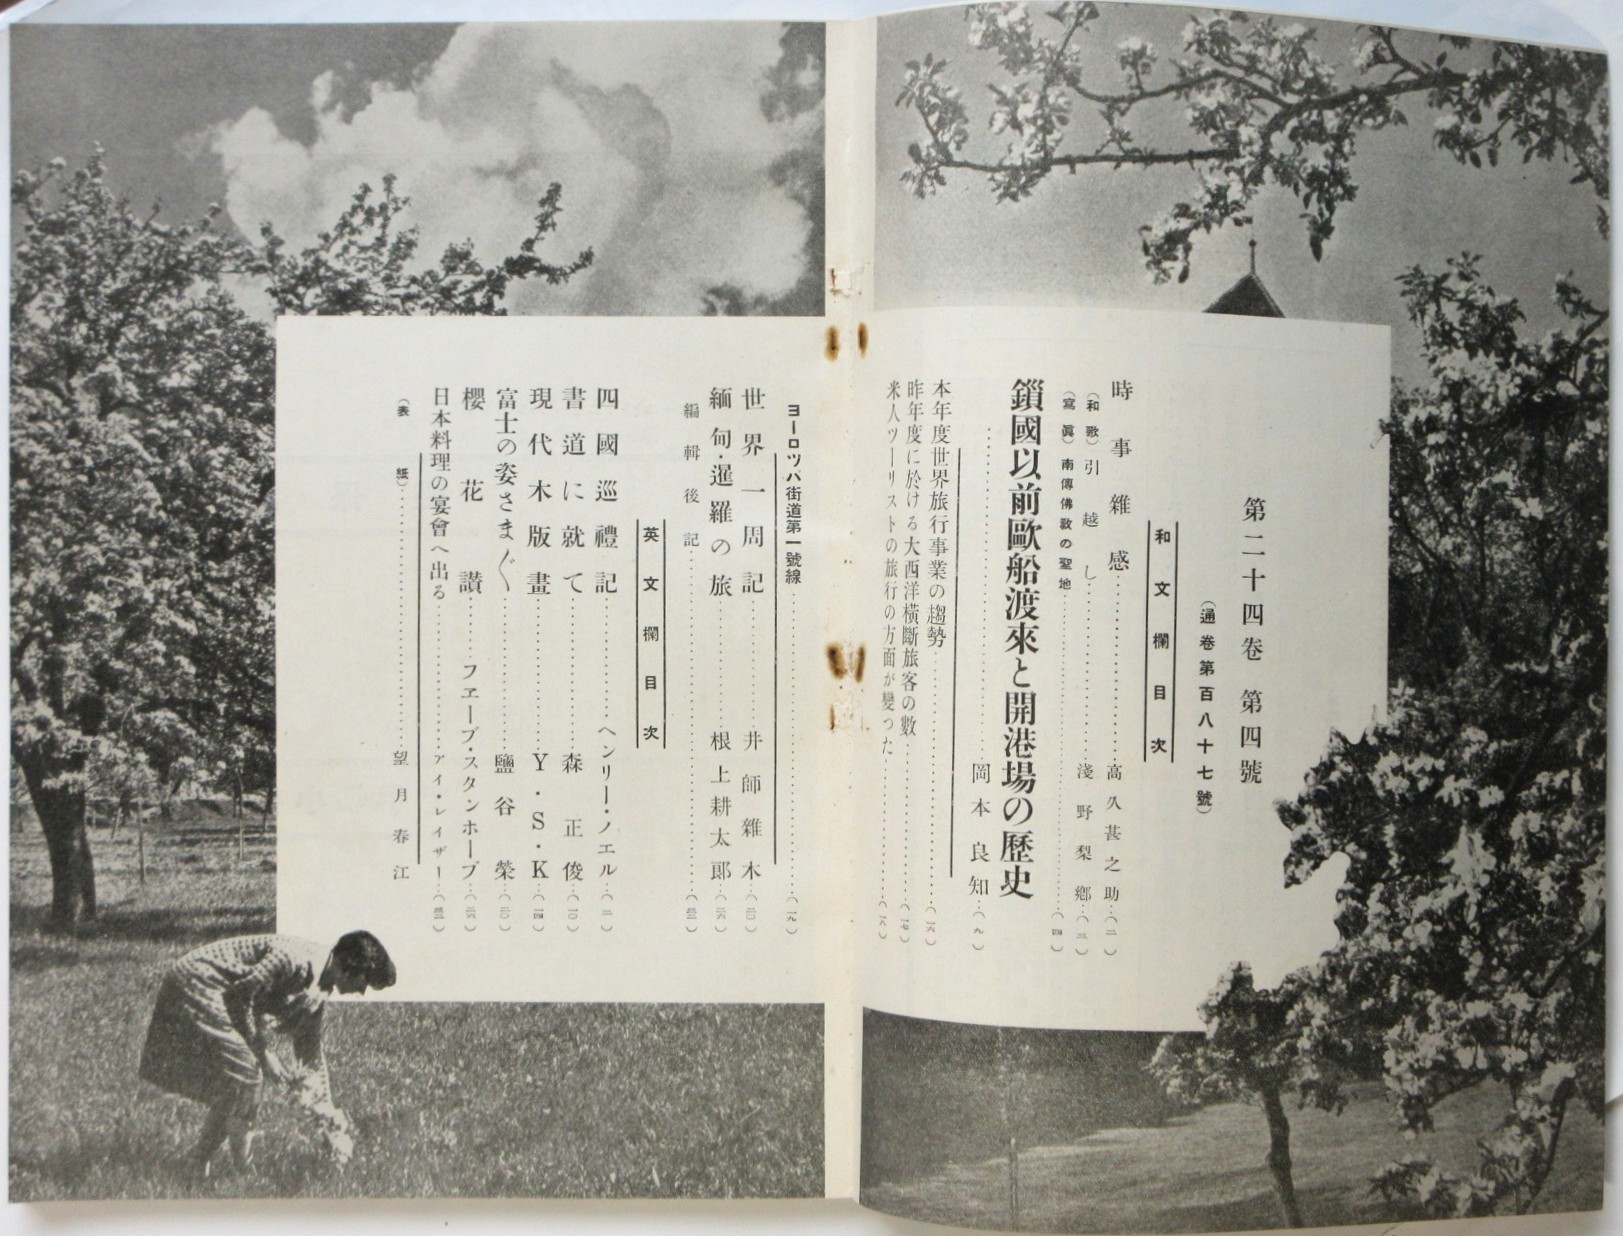 第二十四卷　第四號
（通卷第百八十七號）
和文欄目次
時事雜感……高久甚之助…（二）
（和歌）引越し……淺野梨鄕…（三）
（寫眞）南傳佛敎の聖地……（四）
鎖國以前歐船渡來と開港場の歷史
……岡本良知…（九）
本年度世界旅行事業の趨勢……（一六）
昨年度に於ける大西洋橫斷旅客の數……
米人ツーリストの旅行の方面が變つた……（一八）
ヨーロツパ街道第一號線……（一九）
世界一周記……井師雜木…（二〇）
緬甸・暹羅の旅……根上耕太郞…（二六）
編輯後記……
英文欄目次
四國巡禮記……ヘンリー・ノエル…（二）
書道に就て……森正俊…（一〇）
現代木版畫……Y・S・K…（一四）
富士の姿さま〴〵……鹽谷榮…（二〇）
櫻花讃……フエーブ・スタンホープ…（二六）
日本料理の宴會へ出る……アイ・レイザー…
（表紙）……望月春江